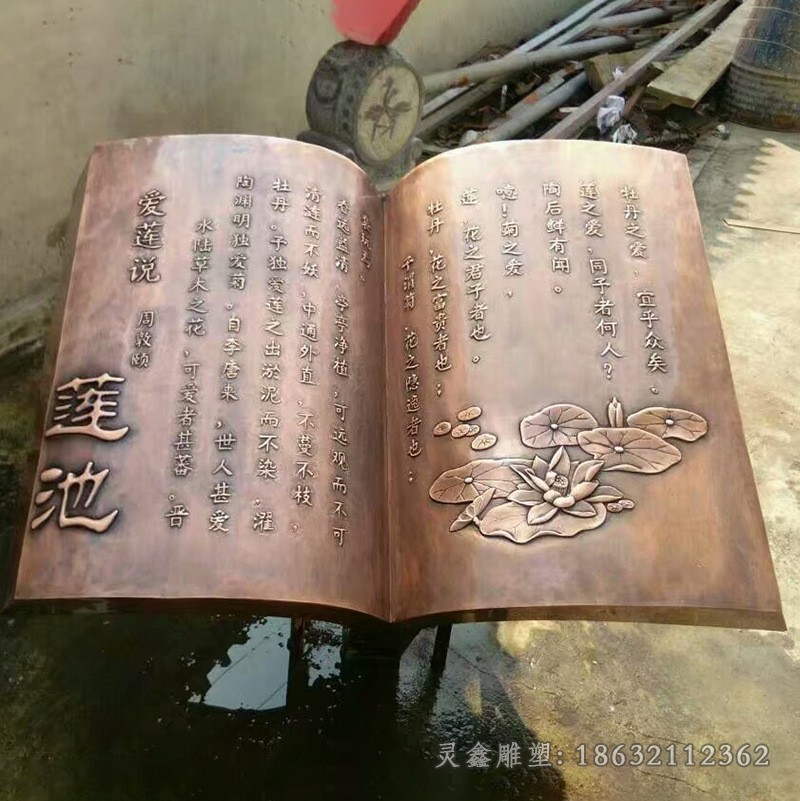 爱莲说
周敦颐
莲池
水陆草木之花,可爱者甚蕃。晋
陶渊明独爱菊。自李唐来,世人甚爱
牡丹。予独爱莲之出淤泥而不染,濯
清涟而不妖,中通外直,不蔓不枝,
香远益清,亭亭净植,可远观而不可
亵玩焉。
予谓菊,花之隐逸者也;
牡丹,花之富贵者也;
莲,花之君子者也。
噫!菊之爱,
陶后鲜有闻。
莲之爱,同予者何人?
牡丹之爱,宜乎众矣。
灵鑫雕塑:18632112362